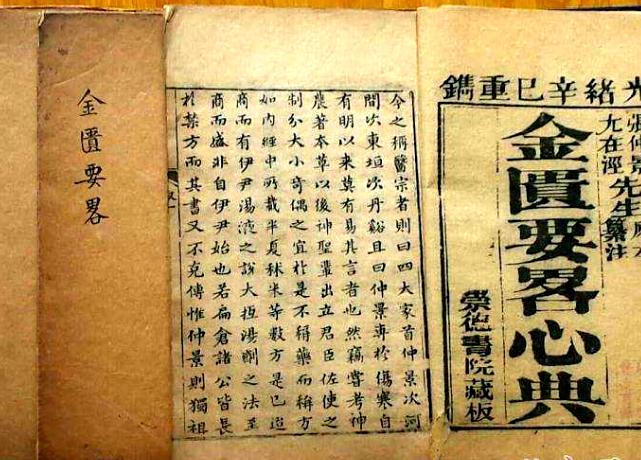 光緒辛巳重鐫
張仲景
尤在涇先生纂注
金匱要畧心典
崇德書院藏板
今之稱醫宗者則曰四大家首仲景次河
間次東垣次丹谿且曰仲景專於傷寒自
有明以來莫有易其言者也然竊嘗考神
農著本草以後神聖輩出立君臣佐使之
制分大小奇偶之宜於是不稱藥而稱方
如內經中所載半夏秫米等數方是已迨
商而有伊尹湯液之說大抵湯劑之法至
商而盛非自伊尹始也若扁倉諸公皆長
於禁方而其書又不克傳惟仲景則獨祖
金匱要畧